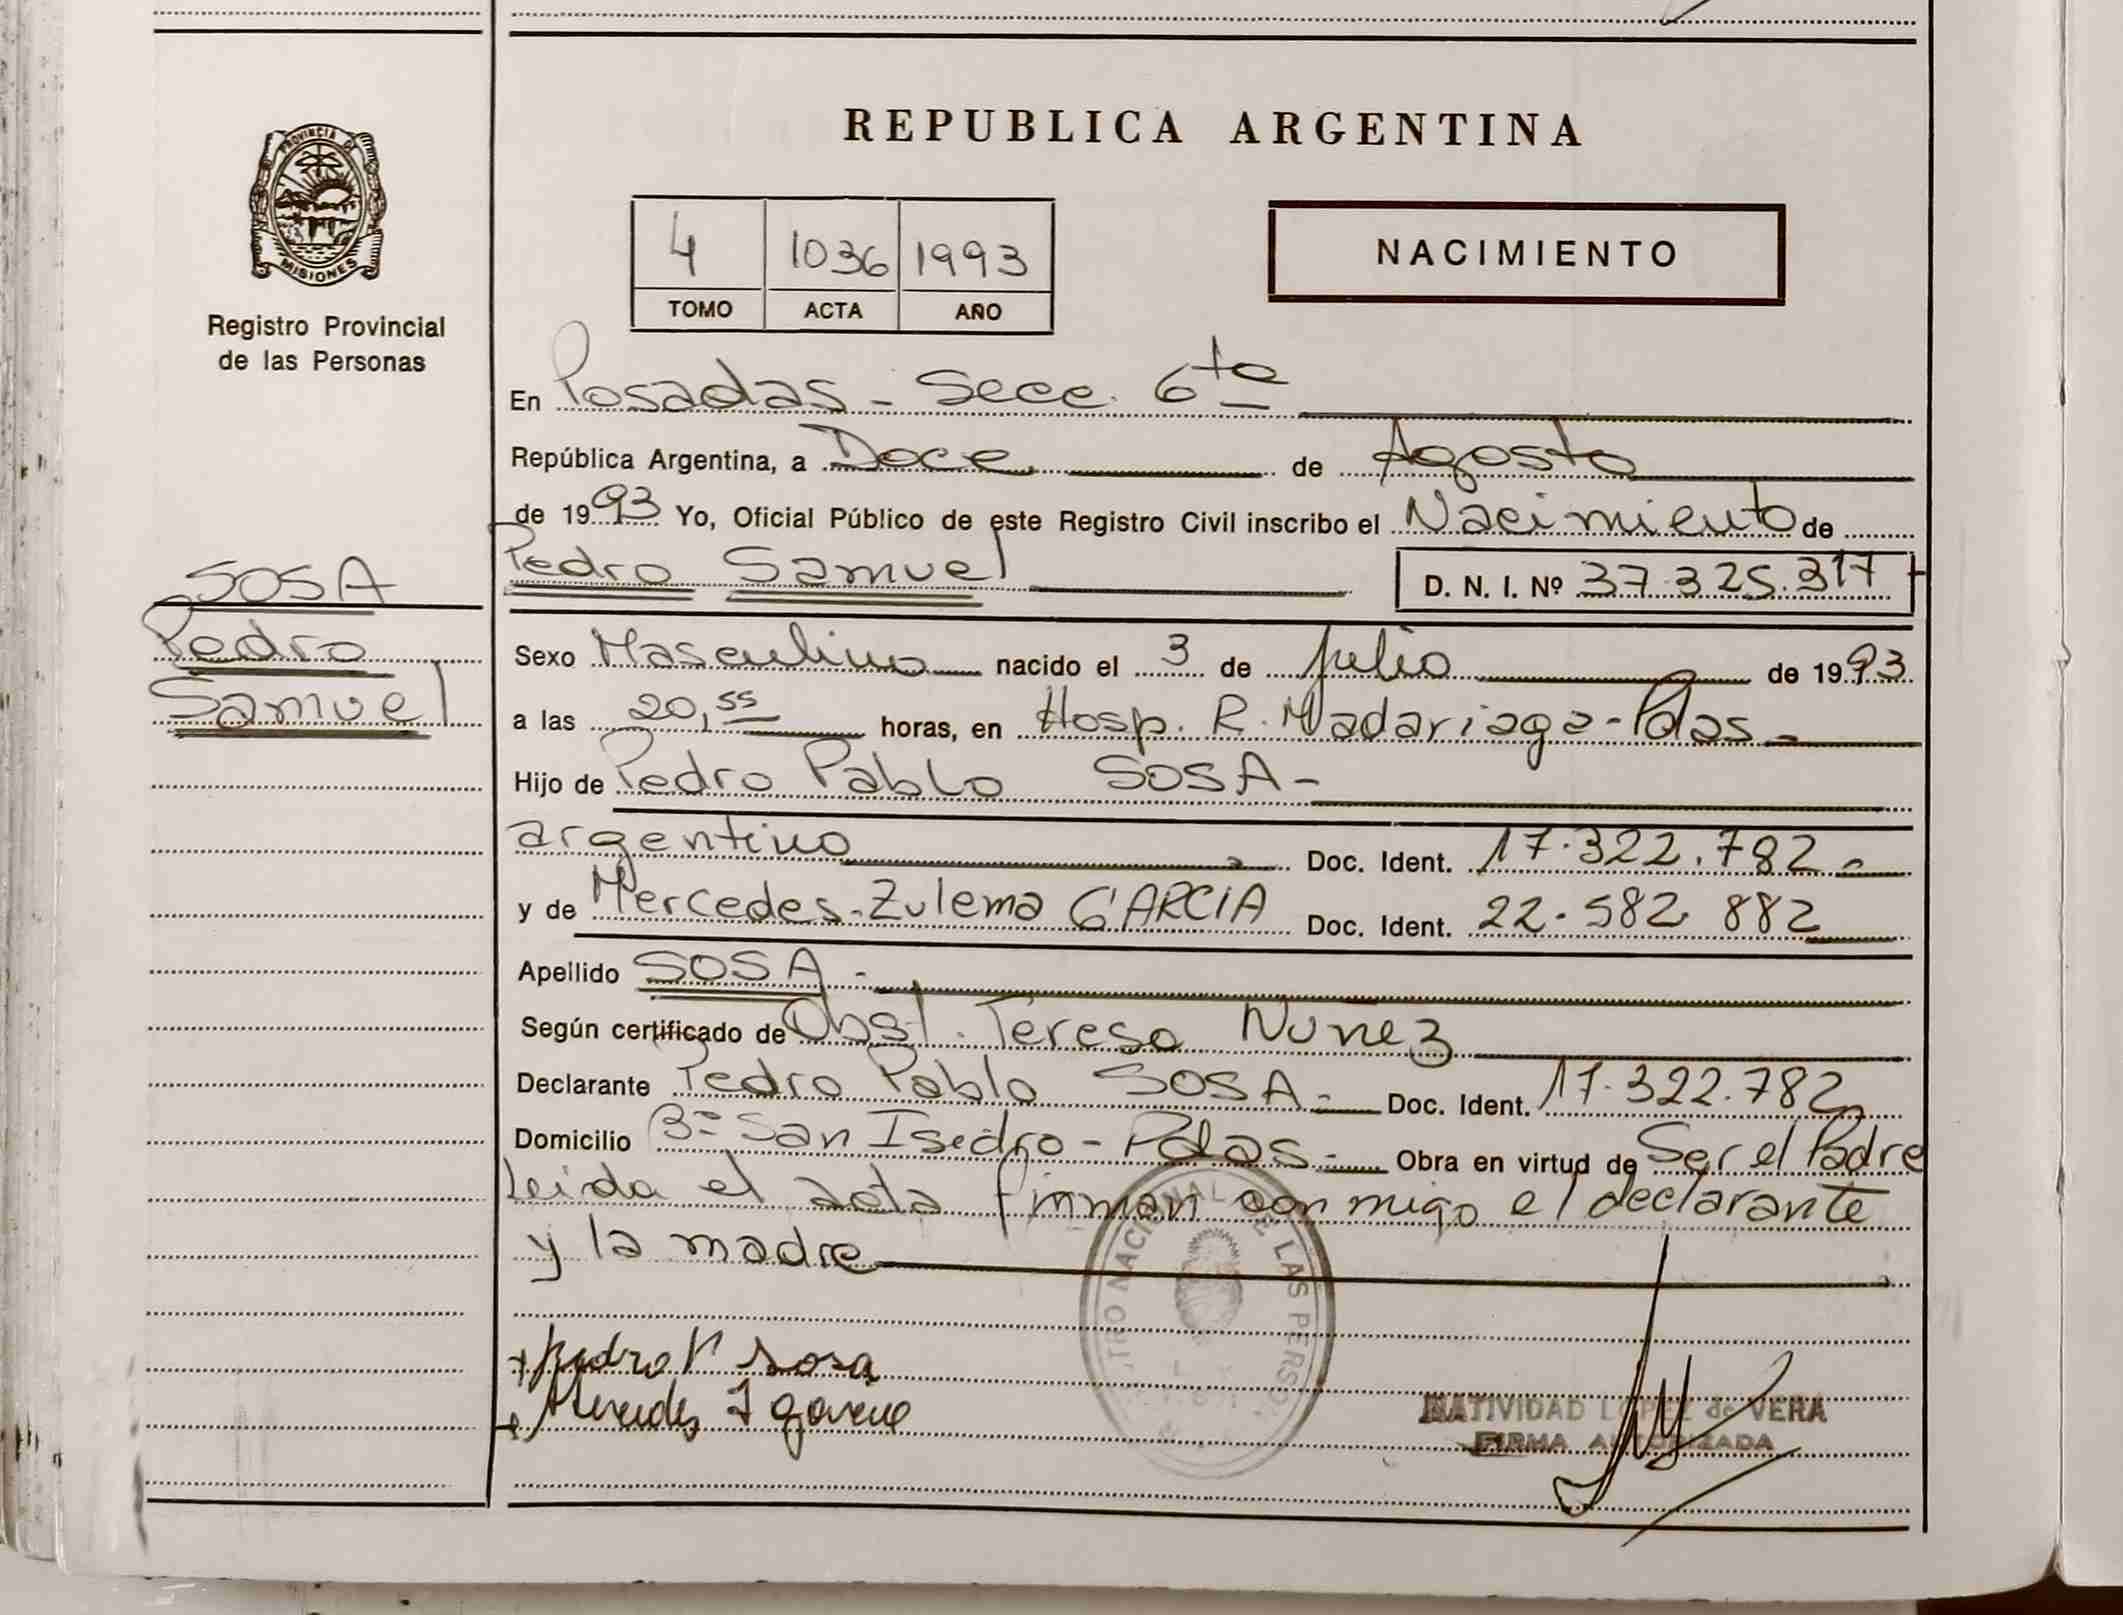 PROVINCIA DE
MISIONES
Registro Provincial
de las Personas
SOSA
Pedro
Samuel
REPUBLICA ARGENTINA
4 1036 1993
TOMO ACTA AÑO
NACIMIENTO
En Posadas - Secc. 6ta
República Argentina, a Doce de Agosto
de 1993 Yo, Oficial Público de este Registro Civil inscribo el Nacimiento de
Pedro Samuel D. N. I. Nº 37.325.317
Sexo Masculino nacido el 3 de Julio de 1993
a las 20,55 horas, en Hosp. R. Madariaga - Pdas -
Hijo de Pedro Pablo SOSA -
argentino Doc. Ident. 17.322.782 -
y de Mercedes Zulema GARCIA Doc. Ident. 22.582.882
Apellido SOSA -
Según certificado de Obst. Teresa Nunez
Declarante Pedro Pablo SOSA - Doc. Ident. 17.322.782
Domicilio Bº San Isidro - Pdas - Obra en virtud de Ser el Padre
Leida el acta firman conmigo el declarante
y la madre
NACIONAL DE LAS PERSO
Pedro P Sosa
Mercedes Z Garcia
NATIVIDAD LOPEZ de VERA
FIRMA AUTORIZADA